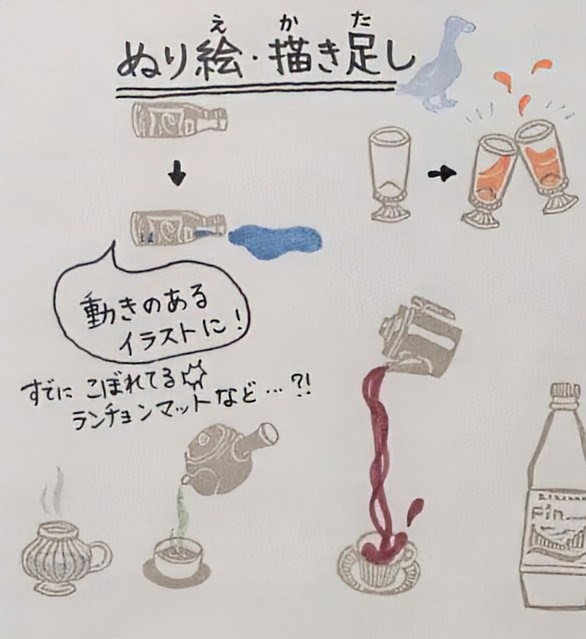 ぬり絵・描き足し
え か た
動きのある
イラストに！
すでに こぼれてる
ランチョンマットなど…?!
Fin